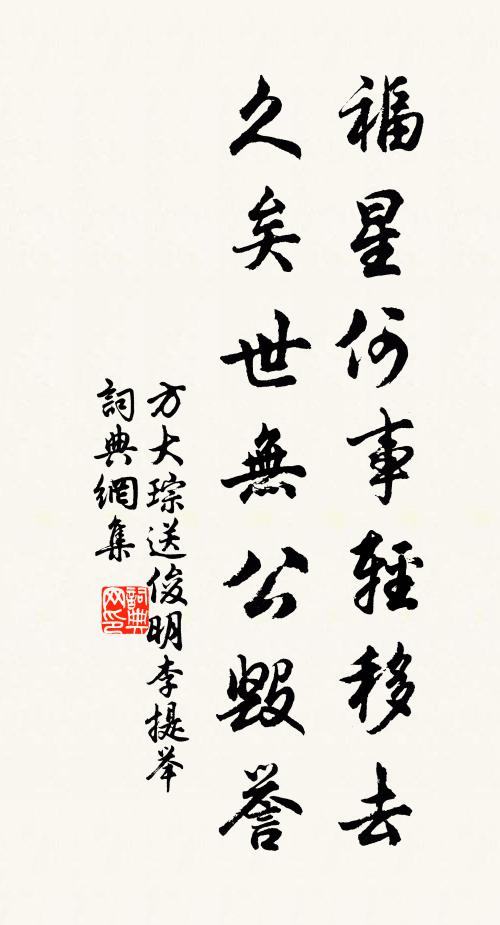 福星何事輕移去
久矣世無公毀譽
方大琮送俊明李提举
詞典網集
詞典网印